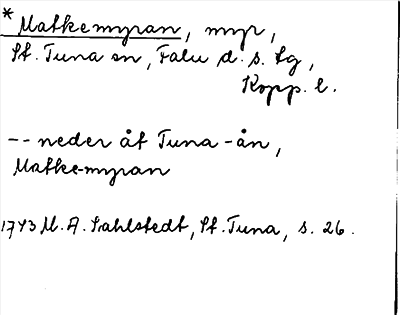 * Matkemyran, myr,
St. Tuna sn, Falu d. s. lg,
Kopp. l.
-- neder åt Tuna-ån,
Matke-myran
1743 M. A. Sahlstedt, St. Tuna, s. 26.